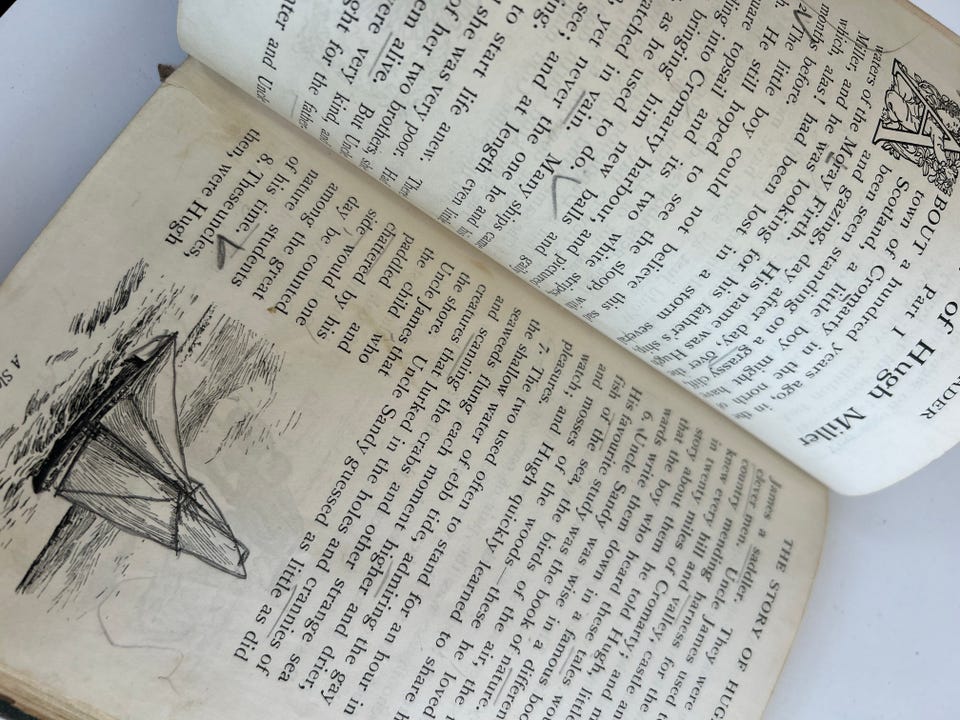 ADER
of Hugh Miller
Part I
ABOUT a hundred years ago, in the
town of Cromarty in the north of
Scotland, a little boy might have
been seen standing on a grassy cliff
and gazing day after day over the
waters of the Moray Firth. His name was Hugh
Miller, and he was looking for his father's ship,
which, alas! had been lost in a storm
months before.
The little boy could not believe this
He still hoped to see the sloop,
uare topsail and its two white stripes
ing into Cromarty harbour, and
bringing him new balls and
as he used to do. Many ships
ached in vain; the one he and his
yet never
see; and at length even
ing
to start life anew.
she was very poor. The
of her two brothers
ere alive. But
ght for the
ater and
THE STORY OF HUG
James a saddler. They were
clever men. Uncle James used
country mending harness for the
knew every hill and valley, castle an
in twenty miles of Cromarty; and m
story about them he told Hugh, little
that the boy who heard these tales
wards write them down in a famous boo
6. Uncle Sandy was wise in a differen
His favourite study was the book of nature
fish of the sea, the birds of the air, the
and mosses of the woods—these he loved
watch; and Hugh quickly learned to share h
pleasures.
7. The two used often to stand for an hour in
the shallow water of ebb tide, admiring the gay
seaweeds flung each moment higher and drier,
and scanning the crabs and other strange sea
creatures that lurked in the holes and crannies of
the shore. Uncle Sandy guessed as little as did
Uncle James that
the child who
paddled and
chattered by his
side, would one
day, be counted
among the great
students of nature
of his time.
8. These uncles,
then, were Hugh
A S